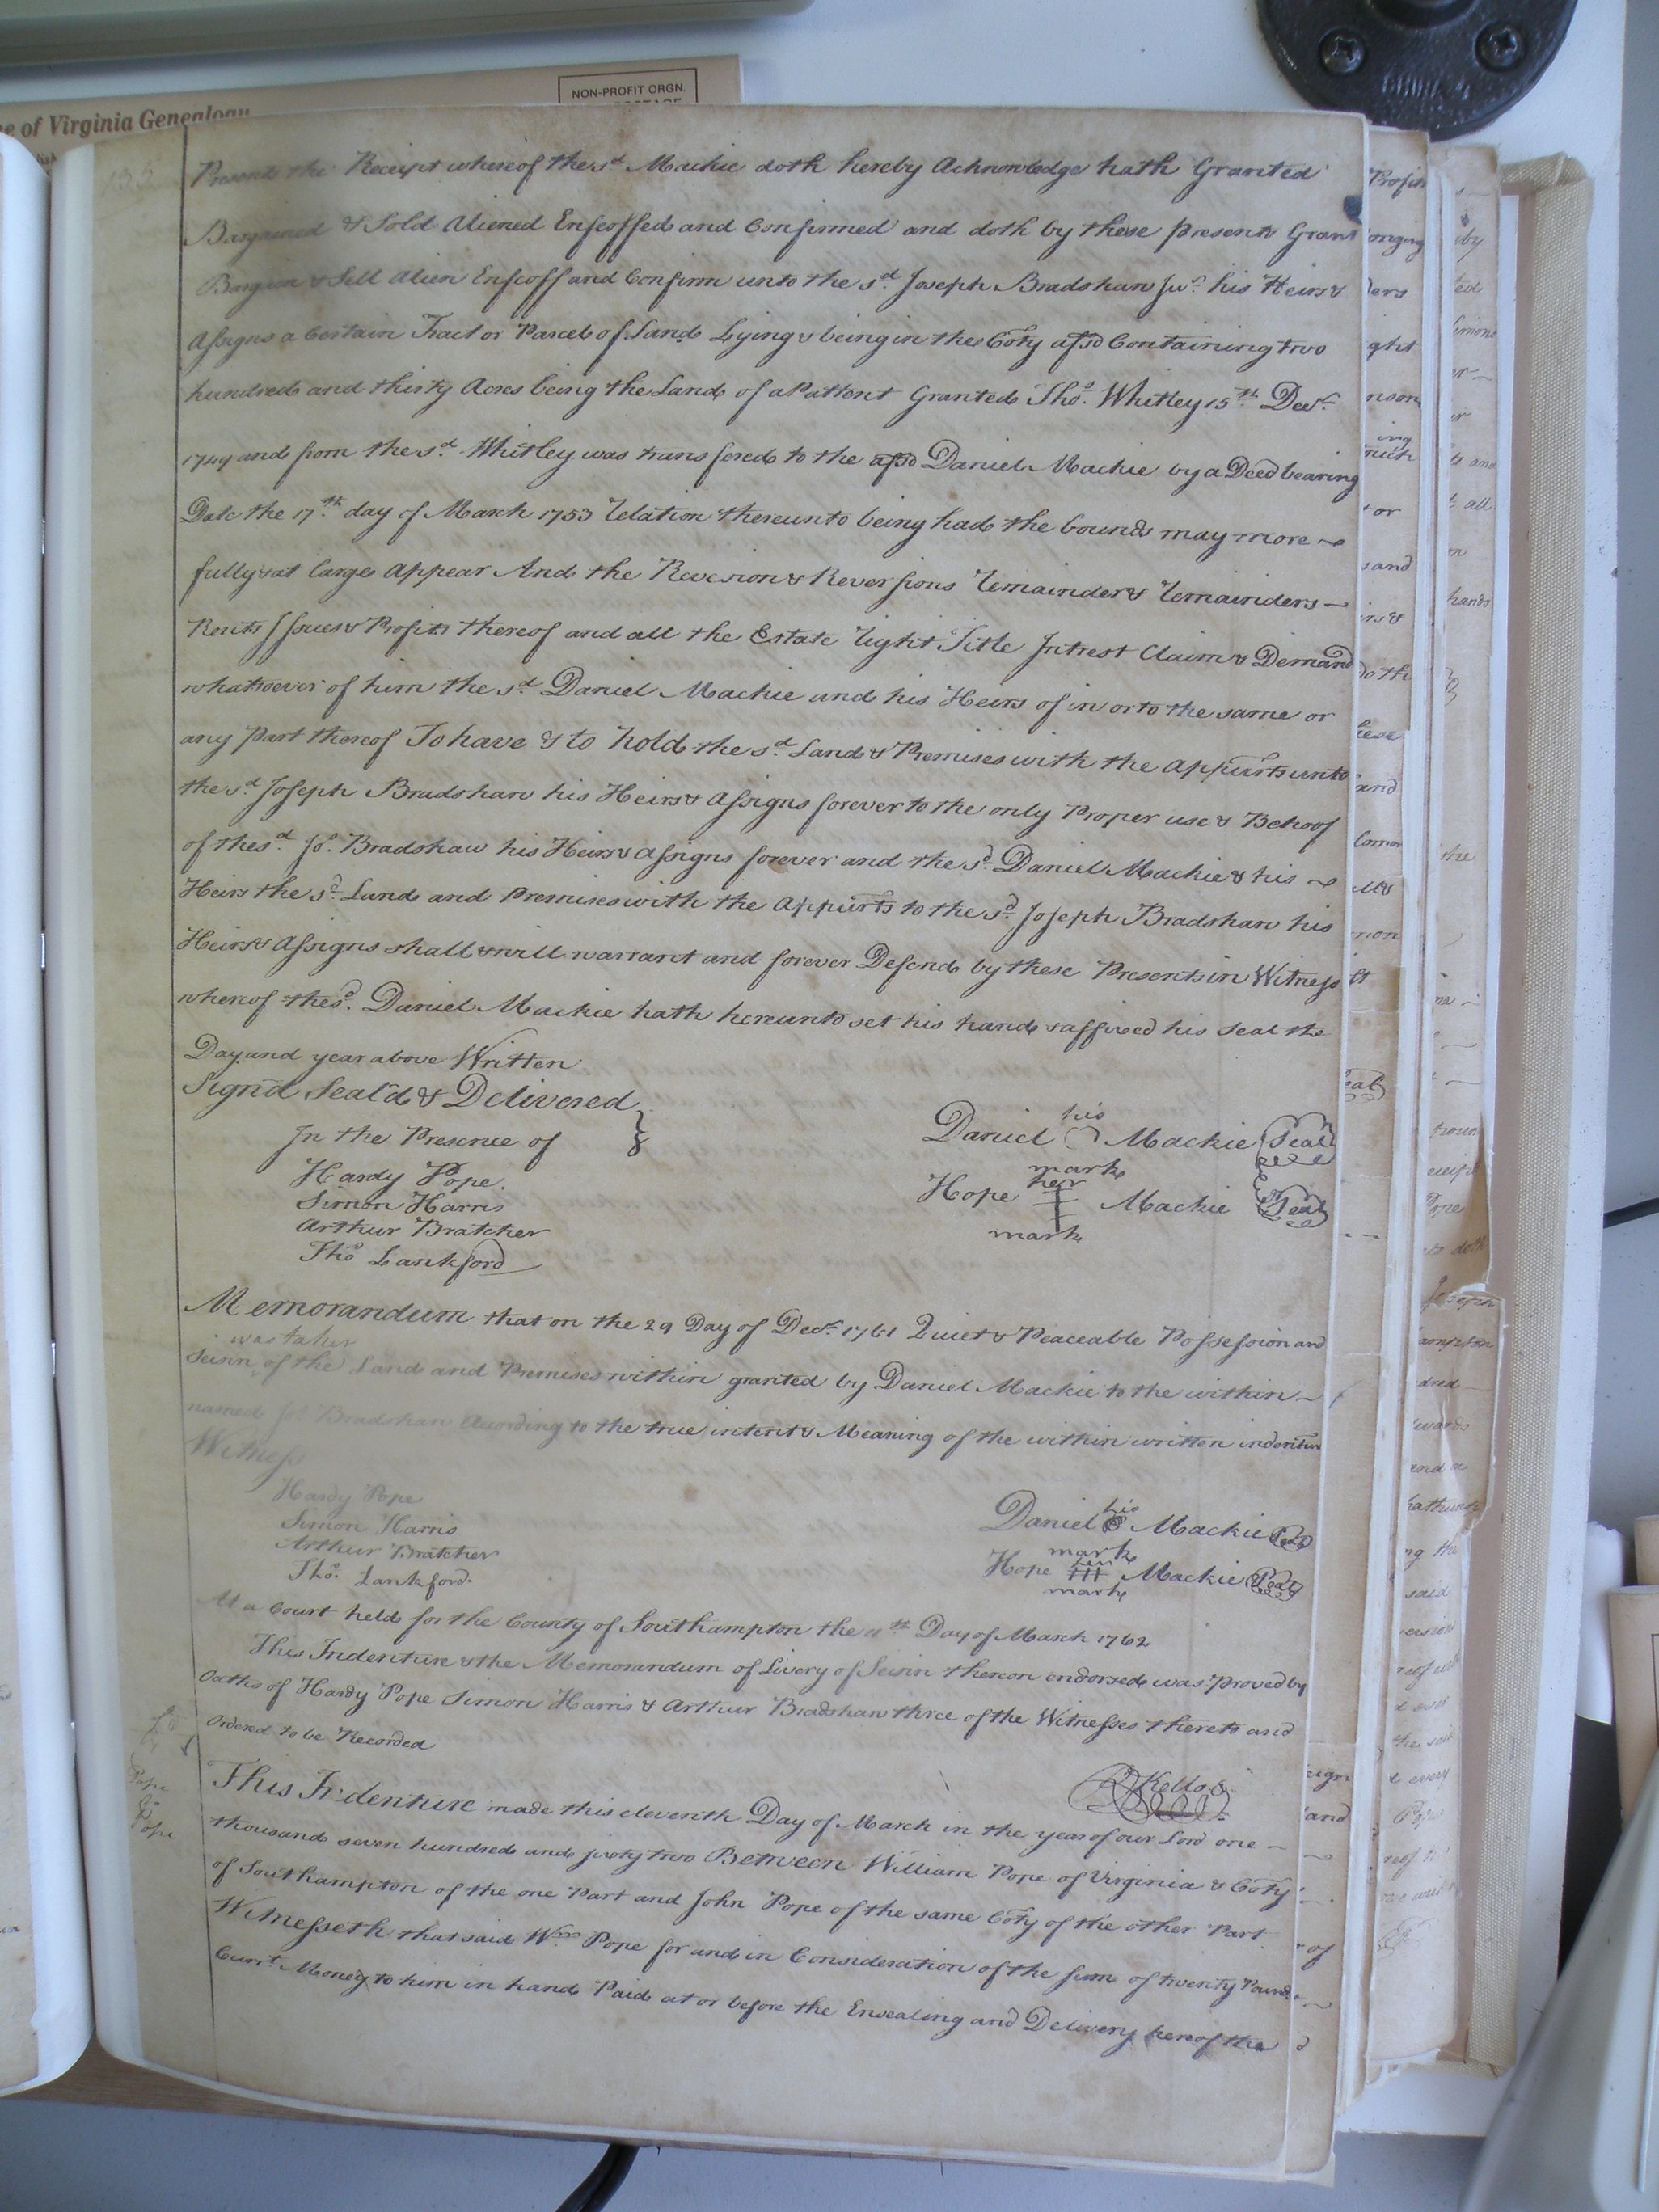 e of Virginia Genealogy
NON-PROFIT ORGN.
Presents the Receipt whereof the sd Mackie doth hereby Acknowledge hath Granted
Bargained & Sold Aliened Enfeoffed and Confirmed and doth by these presents Grant
Bargain & Sell Alien Enfeoff and Confirm unto the sd Joseph Bradshaw Junr his Heirs &
Assigns a Certain Tract or Parcel of Land Lying & being in the Coty afsd Containing two
hundred and thirty Acres being the Land of a Pattent Granted Thos. Whitley 15th Decr.
1749 and from the sd Whitley was transfered to the afsd Daniel Mackie by a Deed bearing
Date the 17th day of March 1753 relation thereunto being had the bounds may more
fully & at large Appear And the Revesion & Reversions remainder & remainders
Rents Issues & Profits thereof and all the Estate right Title Intrest Claim & Demand
whatsoever of him the sd Daniel Mackie and his Heirs of in or to the same or
any part thereof To have & to hold the sd Land & Premises with the appurts unto
the sd Joseph Bradshaw his Heirs & Assigns forever to the only Proper use & Behoof
of the sd Jos. Bradshaw his Heirs & Assigns forever and the sd Daniel Mackie & his
Heirs the sd Land and Premises with the Appurts to the sd Joseph Bradshaw his
Heirs & Assigns shall & will warrant and forever Defend by these Presents in Witness
whereof the sd. Daniel Mackie hath hereunto set his hand & affixed his Seal the
Day and year above Written
Sign'd Seal'd & Delivered
In the Presence of
Hardy Pope.
Simon Harris
Arthur Bratcher
Thos Lankford
his
Daniel Mackie Seal
mark
her
Hope Mackie Seal
mark
Memorandum that on the 29 Day of Decr. 1761 Quiet & Peaceable Possession and
was taken
Seisin of the Land and Premises within granted by Daniel Mackie to the within
named Jos Bradshaw According to the true intent & Meaning of the within written indenture
Witness
Hardy Pope
Simon Harris
Arthur Bratcher
Thos. Lankford.
his
Daniel Mackie Seal
mark
her
Hope Mackie Seal
mark
At a Court held for the County of Southampton the 11th Day of March 1762
This Indenture & the Memorandum of Livery of Seisin thereon endorsed was Proved by
Oaths of Hardy Pope Simon Harris & Arthur Bradshaw three of the Witnesses thereto and
Ordered to be Recorded
R Kello
Pope
to
Pope
This Indenture made this eleventh Day of March in the year of our Lord one
thousand seven hundred and sixty two Between William Pope of Virginia & Coty
of Southampton of the one Part and John Pope of the same Coty of the other Part
Witnesseth that said Wm Pope for and in Consideration of the sum of twenty Pounds
Curr.t Money to him in hand Paid at or before the Ensealing and Delivery hereof the